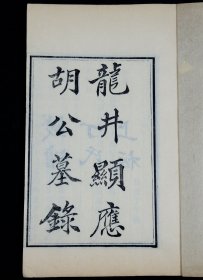 龍井顯應
胡公墓錄